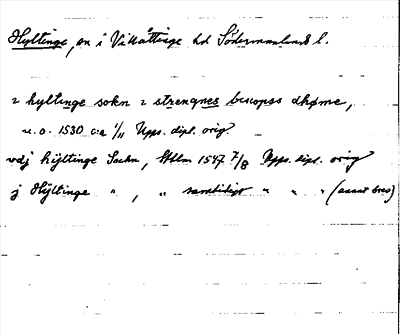 Hyltinge, sn i Villåttinge hd Södermanlands l.
i hyltinge sokn i strengnes biscopss dhøme,
u.o. 1530 ca 1/11 Upps. dipl. orig
vdj hÿltinge Sockn, Sthlm 1547 7/8 Upps. dipl. orig
j Hÿltinge " , " samtidigt " " " (annat brev)